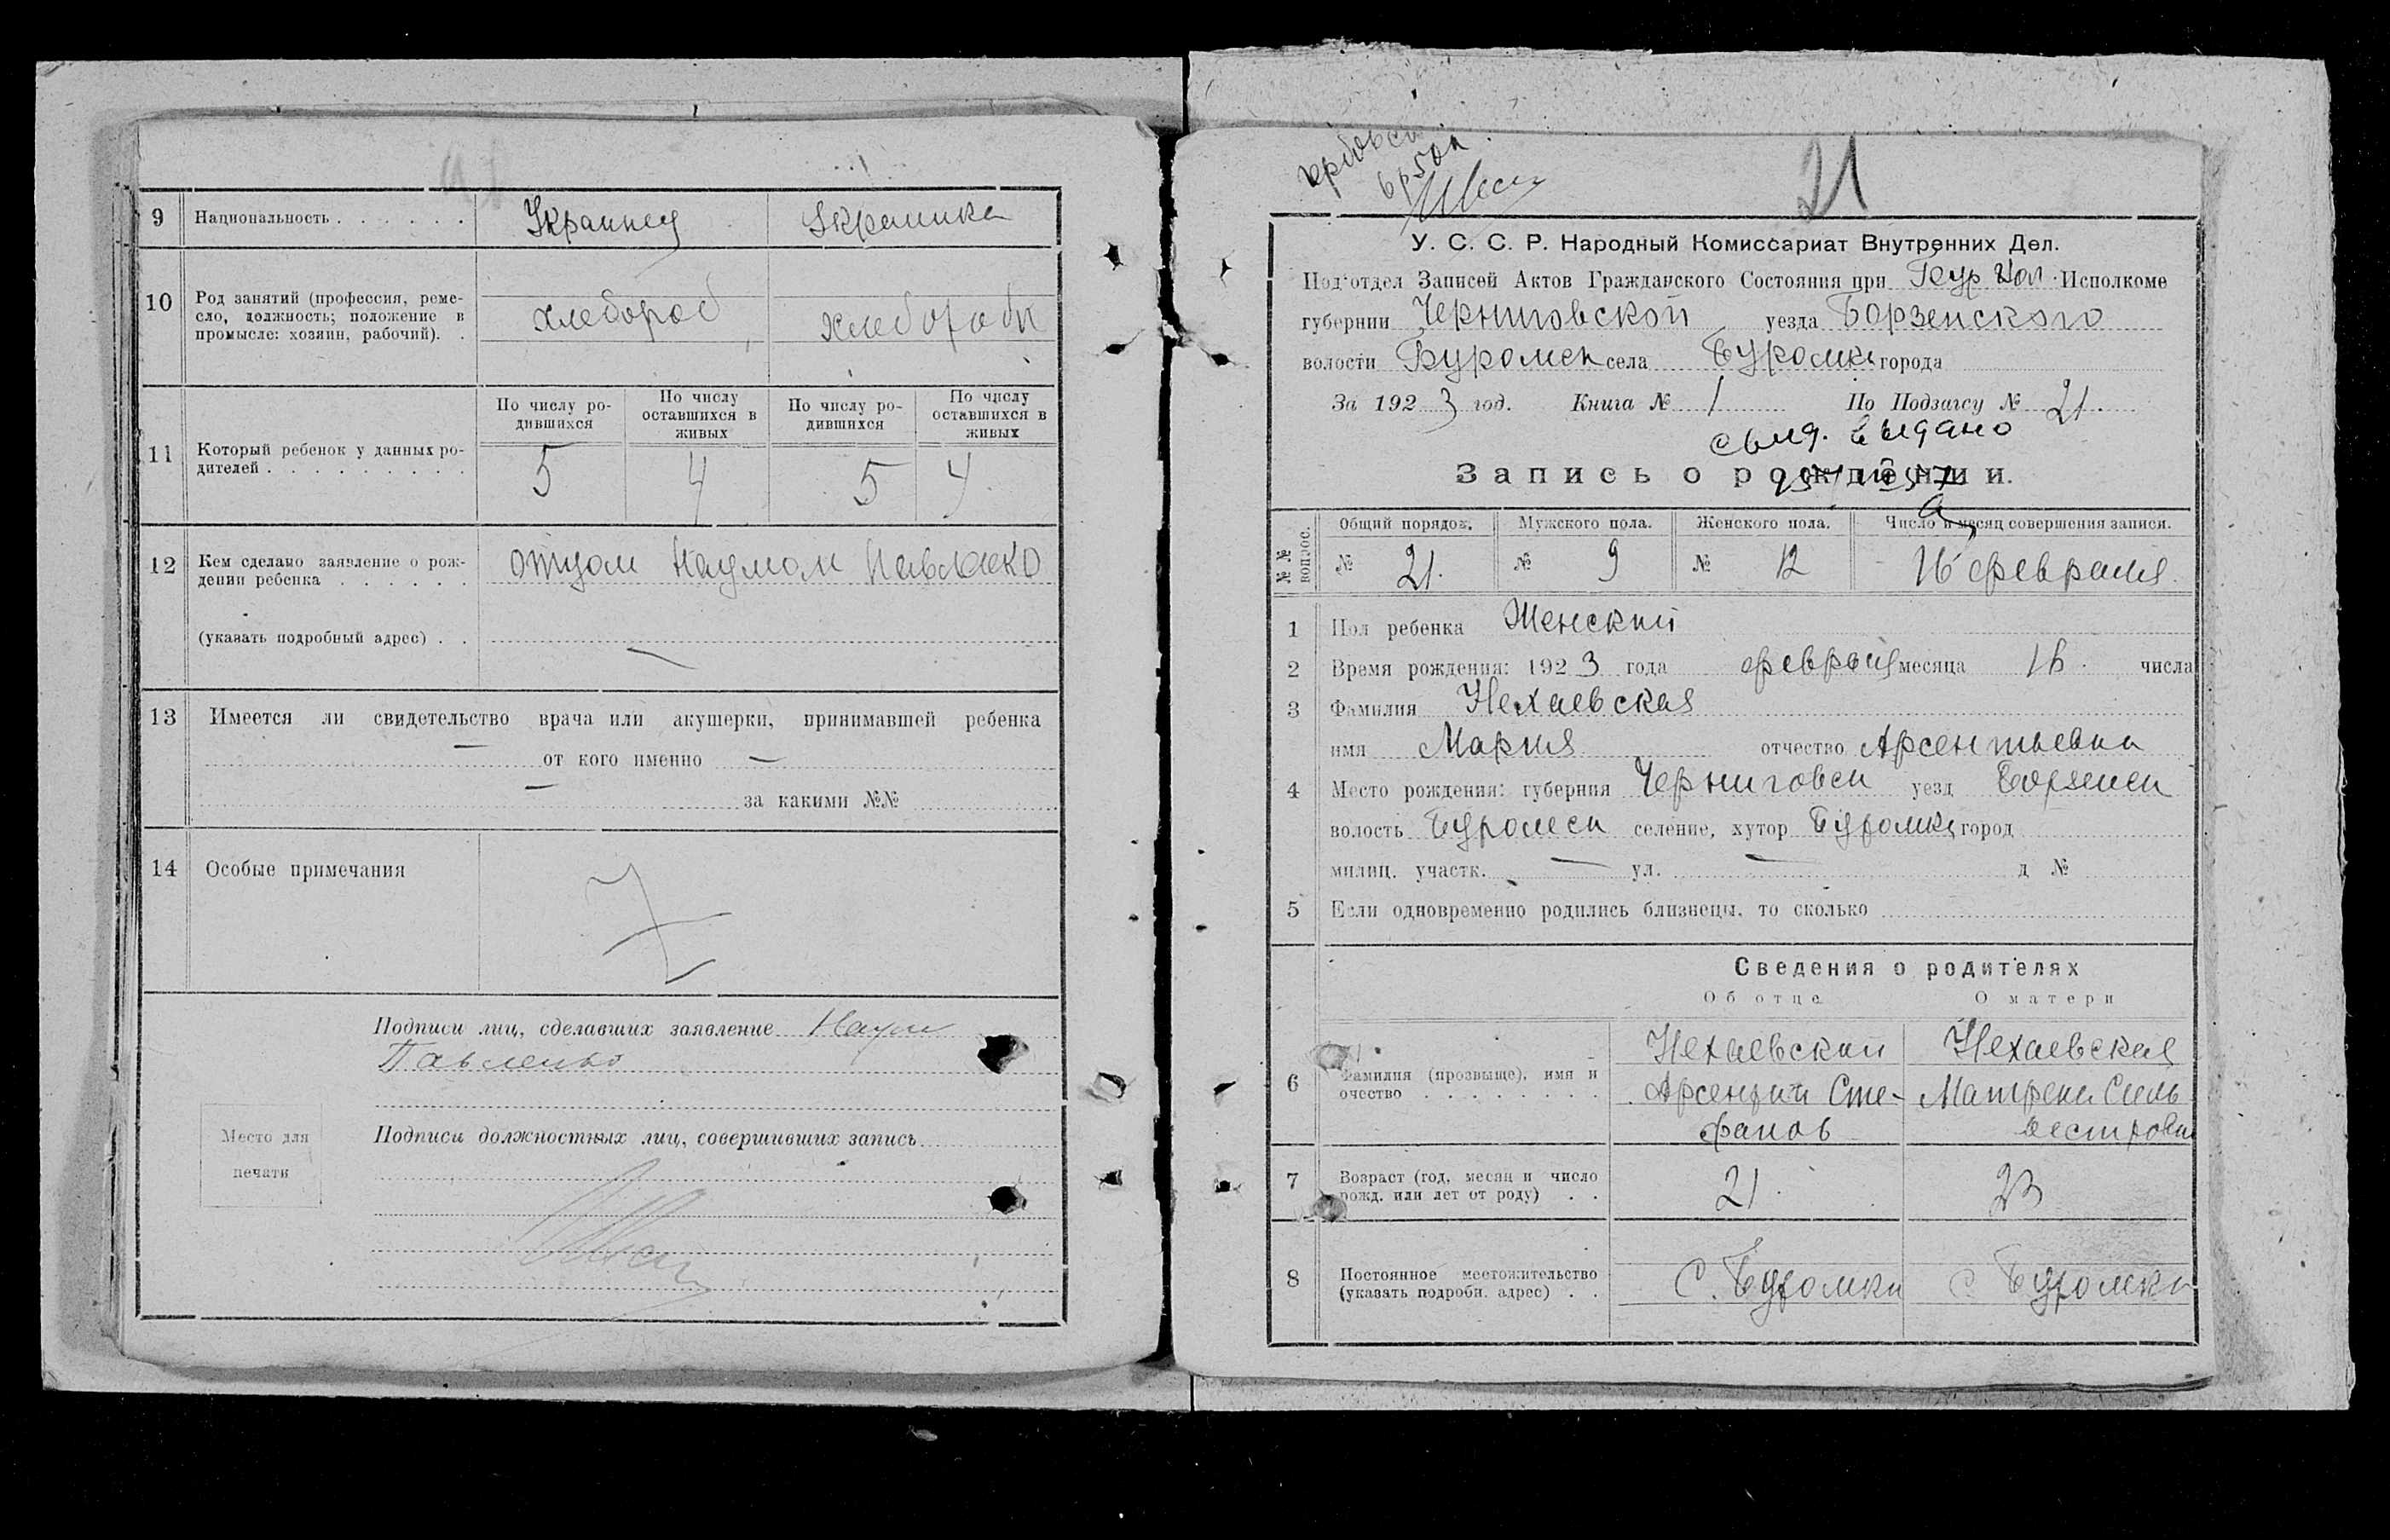 9 Национальность . . . . . . Украинец Украинка
10 Род занятий (профессия, реме-
сло, должность; положение в
промысле: хозяин, рабочий). . хлебороб хлебороби
11 Который ребенок у данных ро-
дителей . . . . . . . . .
По числу ро-
дившихся
По числу
оставшихся в
живых
По числу ро-
дившихся
По числу
оставшихся в
живых
5 4 5 4
12 Кем сделано заявление о рож-
дении ребенка . . . . . . отцом Наумом Павленко
(указать подробный адрес) . . —
13 Имеется ли свидетельство врача или акушерки, принимавшей ребенка
— от кого именно —
— за какими №№
14 Особые примечания
Подписи лиц, сделавших заявление Наум
Павленко
Подписи должностных лиц, совершивших запись
Место для
печати
21
У. С. С. Р. Народный Комиссариат Внутренних Дел.
Под'отдел Записей Актов Гражданского Состояния при Исполкоме
губернии Черниговской уезда Борзенского
волости Буромск села Буромки города
За 1923 год. Книга № 1 По Подзагсу № 21.
свид. выдано
Запись о рождении.
№№ вопрос.
Общий порядок. Мужского пола. Женского пола. Число и месяц совершения записи.
№ 21. № 9 № 12 16 февраля
1 Пол ребенка Женский
2 Время рождения: 1923 года февраля месяца 16. числа
3 Фамилия Нехаевская
имя Мария отчество Арсентьевна
4 Место рождения: губерния Черниговск уезд Борзенск
волость Буромск селение, хутор Буромки город
милиц. участк. — ул. — д №
5 Если одновременно родились близнецы, то сколько
Сведения о родителях
Об отце О матери
6 Фамилия (прозвыще), имя и
очество . . . . . . . .
Нехаевский Нехаевская
Арсентий Сте- Матрена Силь
фанов вестровна
7 Возраст (год, месяц и число
рожд. или лет от роду) . . 21. 23
8 Постоянное местожительство
(указать подробн. адрес) . . С. Буромки С Буромки